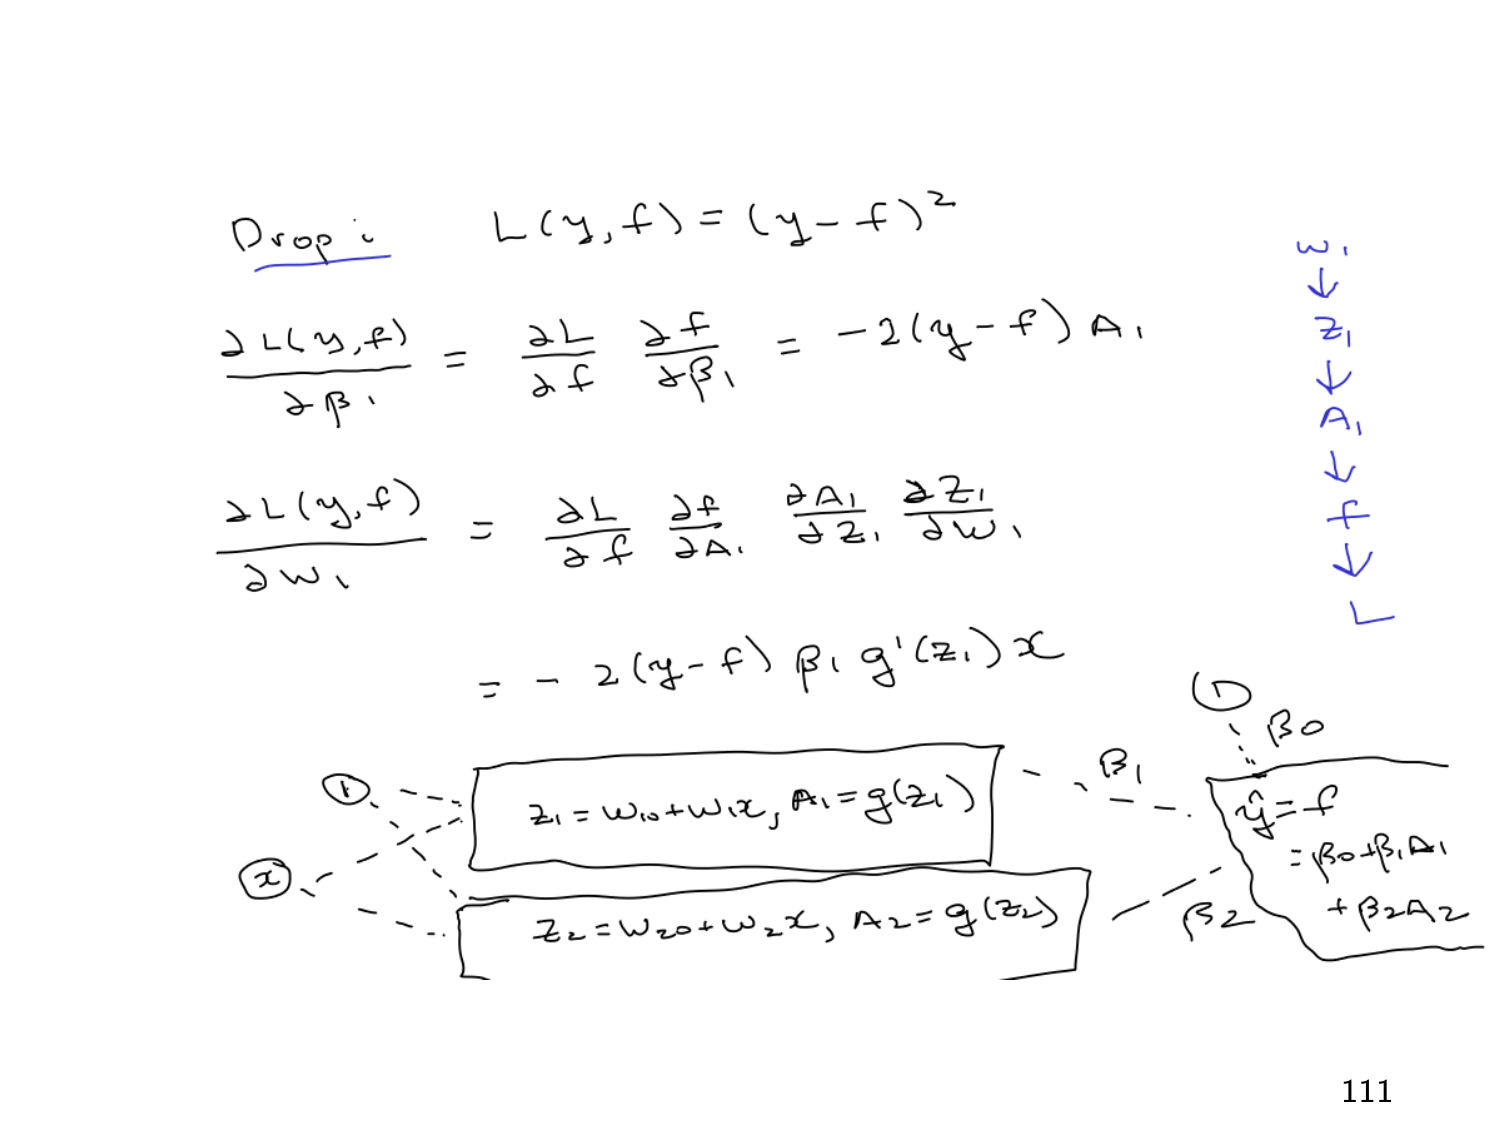 Drop i L(y, f) = (y - f)²
∂L(y, f)/∂β₁ = ∂L/∂f ∂f/∂β₁ = -2(y - f) A₁
∂L(y, f)/∂w₁ = ∂L/∂f ∂f/∂A₁ ∂A₁/∂z₁ ∂z₁/∂w₁
= - 2(y - f) β₁ g'(z₁) x
w₁
↓
z₁
↓
A₁
↓
f
↓
L
1
x
z₁ = w₁₀ + w₁x, A₁ = g(z₁)
z₂ = w₂₀ + w₂x, A₂ = g(z₂)
β₁
β₂
1
β0
ŷ = f
= β0 + β₁A₁
+ β₂A₂
111